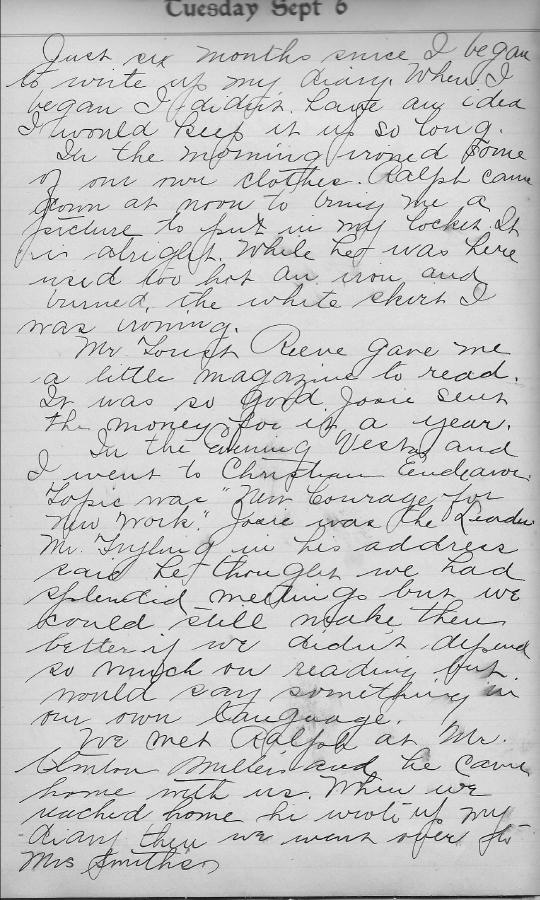 Tuesday Sept 6
Just six months since I began
to write up my diary. When I
began I didn't have any idea
I would keep it up so long.
In the morning ironed some
of our own clothes. Ralph came
down at noon to bring me a
picture to put in my locket. It
is alright. While he was here
used too hot an iron and
burned, the white skirt I
was ironing.
Mr Foust Reeve gave me
a little magazine to read.
It was so good Josie sent
the money for it a year.
In the Evening Vesta and
I went to Christian Endeavor.
Topic was "New Courage for
New Work." Josie was the Leader
Mr. Fryling in his address
said he thought we had
splendid meetings but we
could still make them
better if we didn't depend
so much on reading but
would say something in
our own language.
We met Ralph at Mr.
Clinton Miller's and he came
home with us. When we
reached home he wrote up my
diary then we went over to
Mrs Smith's